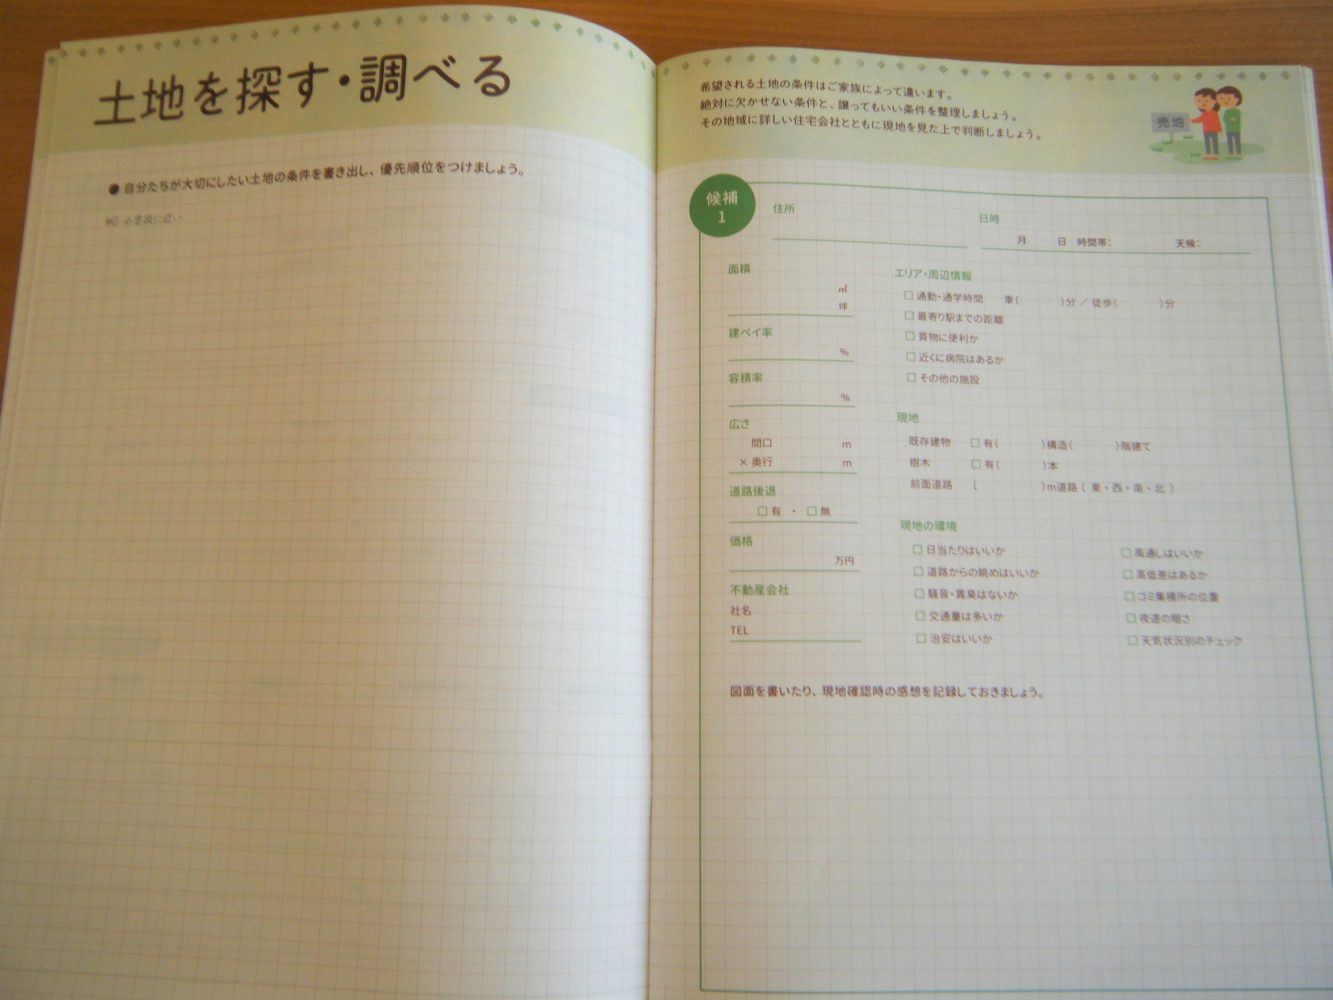 土地を探す・調べる
● 自分たちが大切にしたい土地の条件を書き出し、優先順位をつけましょう。
例) 小学校に近い
希望される土地の条件はご家族によって違います。
絶対に欠かせない条件と、譲ってもいい条件を整理しましょう。
その地域に詳しい住宅会社とともに現地を見た上で判断しましょう。
売地
候補
1
住所
日時
月 日 時間帯: 天候:
面積
㎡
坪
建ペイ率
%
容積率
%
広さ
間口 m
× 奥行 m
道路後退
□ 有 ・ □ 無
価格
万円
不動産会社
社名
TEL
エリア・周辺情報
□ 通勤・通学時間 車( )分 / 徒歩( )分
□ 最寄り駅までの距離
□ 買物に便利か
□ 近くに病院はあるか
□ その他の施設
現地
既存建物 □ 有( )構造( )階建て
樹木 □ 有( )本
前面道路 ( )m道路 ( 東・西・南・北 )
現地の環境
□ 日当たりはいいか
□ 道路からの眺めはいいか
□ 騒音・異臭はないか
□ 交通量は多いか
□ 治安はいいか
□ 風通しはいいか
□ 高低差はあるか
□ ゴミ集積所の位置
□ 夜道の暗さ
□ 天気状況別のチェック
図面を書いたり、現地確認時の感想を記録しておきましょう。